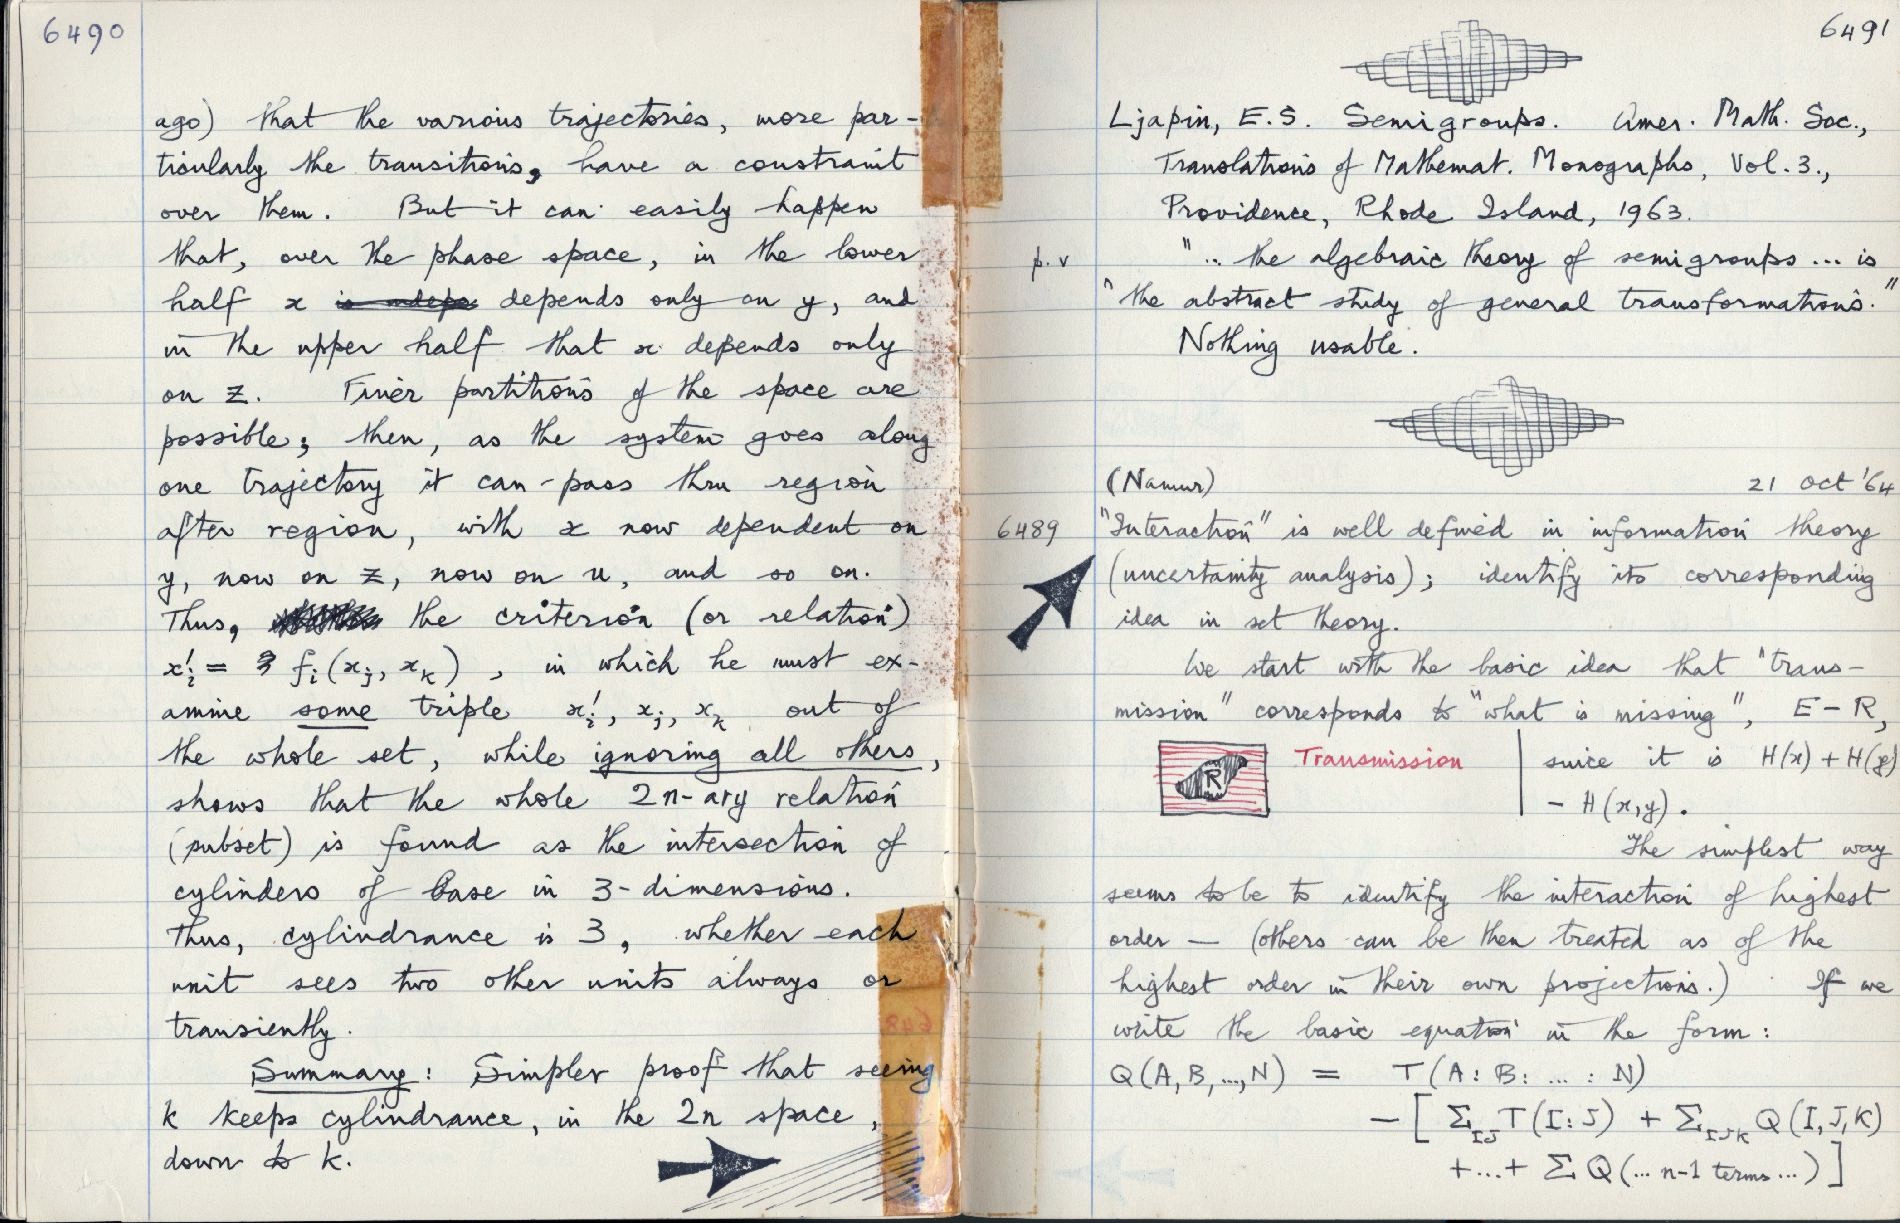 6490
ago) that the various trajectories, more par-
ticularly the transitions, have a constraint
over them. But it can easily happen
that, over the phase space, in the lower
half x depends only on y, and
in the upper half that x depends only
on z. Finer partitions of the space are
possible; then, as the system goes along
one trajectory it can pass thru region
after region, with x now dependent on
y, now on z, now on u, and so on.
Thus, the criterion (or relation)
x'i = fi(xj, xk), in which he must ex-
amine some triple x'i, xj, xk out of
the whole set, while ignoring all others,
shows that the whole 2n-ary relation
(subset) is found as the intersection of
cylinders of base in 3-dimensions.
Thus, cylindrance is 3, whether each
unit sees two other units always or
transiently.
Summary: Simpler proof that seeing
k keeps cylindrance, in the 2n space,
down to k.
6491
Ljapin, E.S. Semigroups. Amer. Math. Soc.,
Translations of Mathemat. Monographs, Vol. 3.,
Providence, Rhode Island, 1963.
p. v ".. the algebraic theory of semigroups ... is
"the abstract study of general transformations."
Nothing usable.
(Namur) 21 Oct '64
6489 "Interaction" is well defined in information theory
(uncertainty analysis); identify its corresponding
idea in set theory.
We start with the basic idea that "trans-
mission" corresponds to "what is missing", E - R,
R Transmission since it is H(x) + H(y)
- H(x,y).
The simplest way
seems to be to identify the interaction of highest
order — (others can be then treated as of the
highest order in their own projections.) If we
write the basic equation in the form:
Q(A, B, ..., N) = T(A : B : ... : N)
- [ Σ_IJ T(I : J) + Σ_IJK Q(I, J, K)
+ ... + Σ Q(... n-1 terms ...) ]